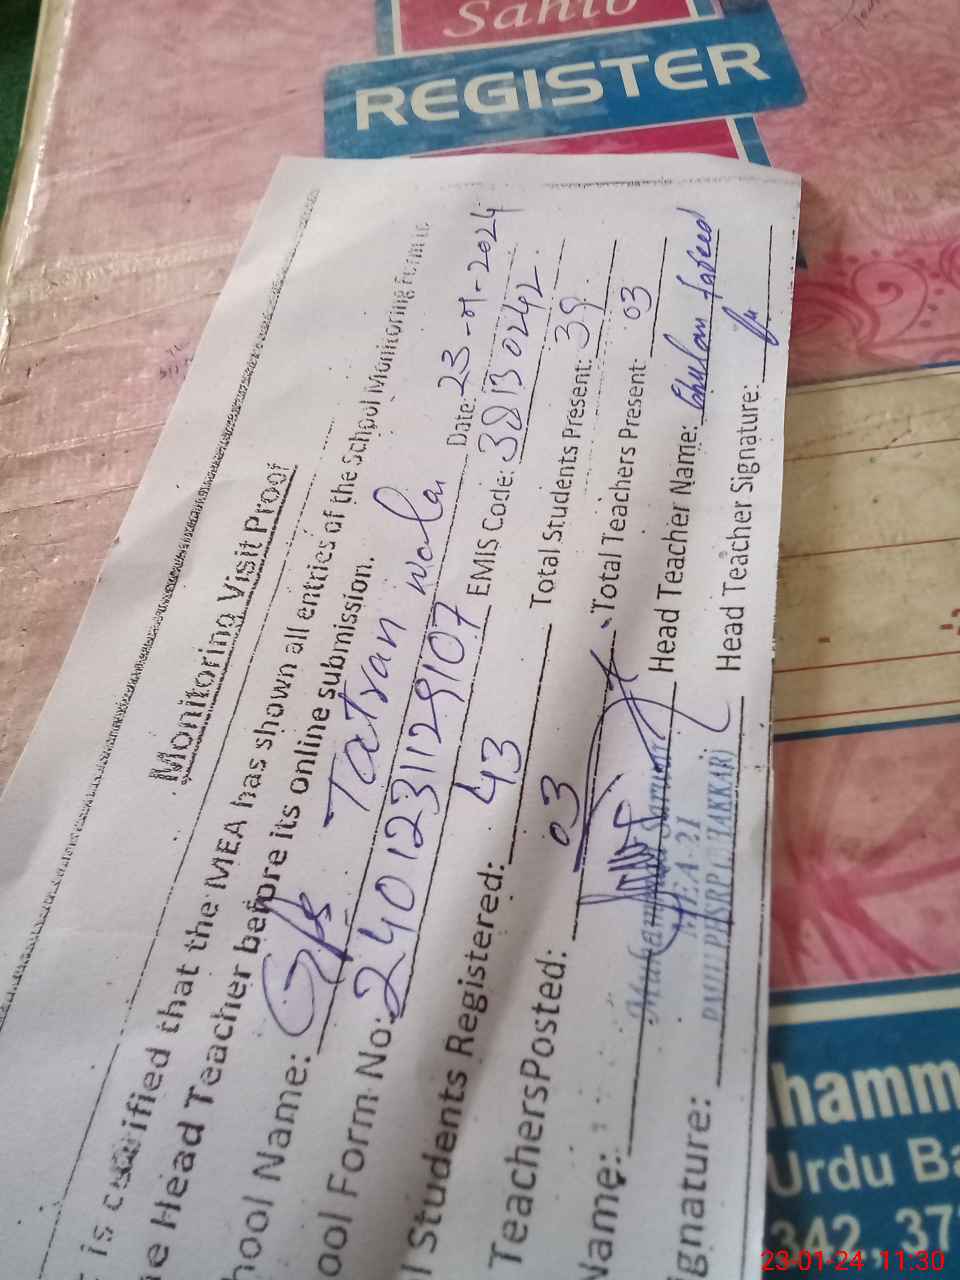 Sahib
REGISTER
Monitoring Visit Proof
is certified that the MEA has shown all entries of the School Monitoring Form to
e Head Teacher before its online submission.
hool Name: Gps Tatran wala Date: 23-01-2024
ool Form No: 2401231129107 EMIS Code: 38130242
l Students Registered: 43 Total Students Present: 39
TeachersPosted: 03 Total Teachers Present 03
Name: Muhammad Head Teacher Name: Ghulam fareed
MEA-21
PMIU PESRP
ignature: Head Teacher Signature:
hamm
Urdu Ba
342, 37
23-01-24 11:30